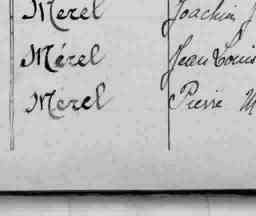 Merel Joachim J
Mérel Jean Louis
Merel Pierre M